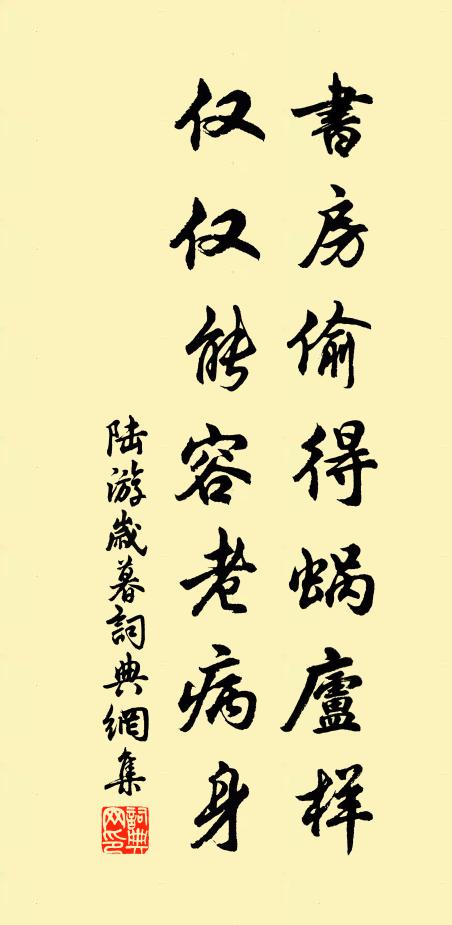 書房偷得蜗廬样
仅仅能容老病身
陆游歲暮詞典網集
詞典網印